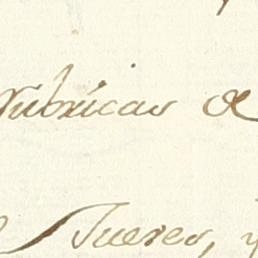 rubricas de
Jueses, y